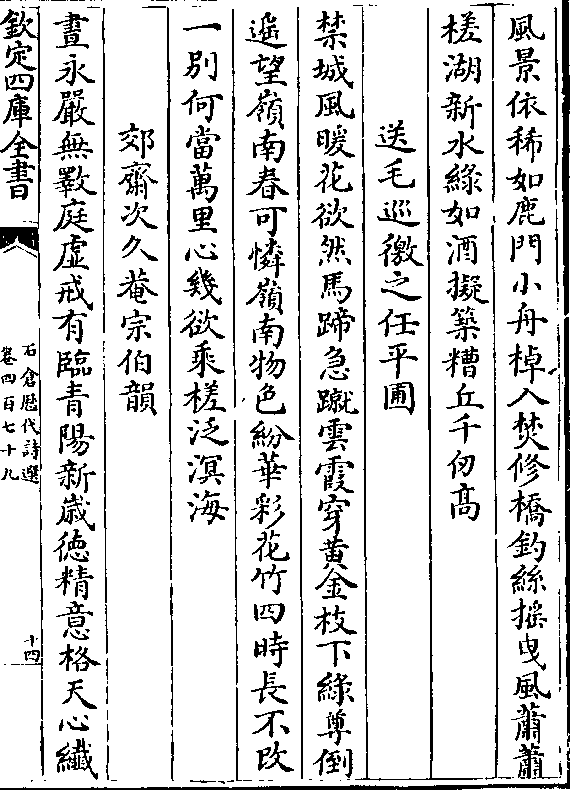 風景依稀如鹿門小舟棹入焚修橋釣絲摇曳風蕭蕭
槎湖新水綠如酒擬築糟丘千仞高
送毛巡徼之任平圃
禁城風暖花欲然馬蹄急蹴雲霞穿黄金枝下綠尊倒
遥望嶺南春可憐嶺南物色紛華彩花竹四時長不改
一別何當萬里心幾欲乘槎泛溟海
郊齋次久菴宗伯韻
晝永嚴無斁庭虚戒有臨青陽新歲徳精意格天心纖
欽定四庫全書
石倉歴代詩選
卷四百七十九
十四